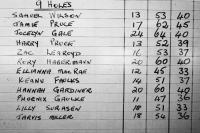 9 HOLES
SAMUEL WILSON 13 53 40
JAMIE PRUCE 17 62 45
JOCELYN GALE 24 64 40
HARRY PRUCE 13 52 39
ZAC LEAROYD 16 53 37
RORY HAGERMANN 20 60 40
ELLIANNA MACRAE 12 45 33
KEANU FAULKS 14 51 37
HANNAH GARDINER 20 60 40
PHOENIX GAULKE 11 47 36
LILLY SORENSEN 18 51 33
JARVIS MILLER 18 54 36